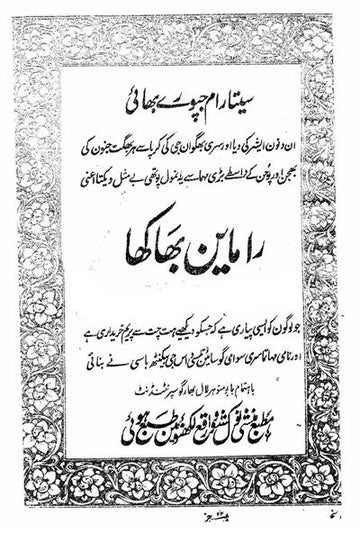 سیتا رام جپو رے بھائی
ان دنون ایشر کی دیا اور سری بھگوان جی کی کرپا سے ہر بھگت جنون کی
بھجن اور پوجن کے واسطے بڑی مہما سے یہ انمول پوتھی بے مثل ویکتا اعنی
راماین بھاکھا
جو لوگون کو ایسی پیاری ہے کہ جسکو دیکھیے ہت چت سے پریم خریداری ہے
اور نامی مہاتما سری سوامی گوسائین تلسی داس جی بیکنٹھ باسی نے بنائی
باہتمام بابو منوہر لال بھارگو سپرنٹنڈنٹ
مطبع منشی نول کشور واقع لکھنؤ مین طبع ہوئی